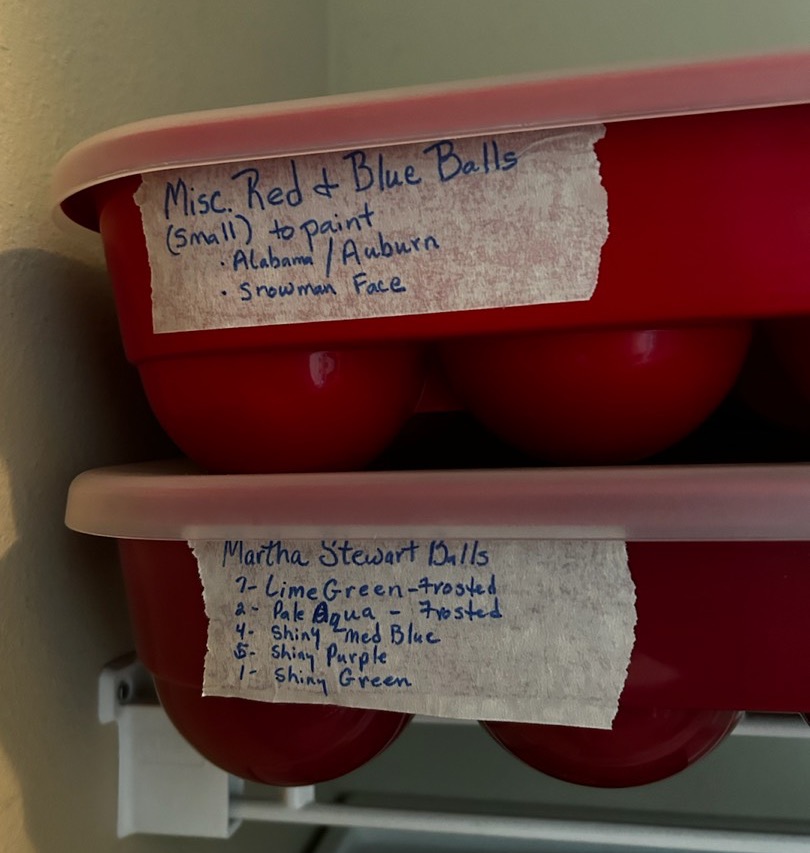 Misc. Red & Blue Balls
(small) to paint
· Alabama / Auburn
· Snowman Face
Martha Stewart Balls
7- Lime Green - Frosted
2- Pale Aqua - Frosted
4- Shiny Med Blue
5- Shiny Purple
1- Shiny Green